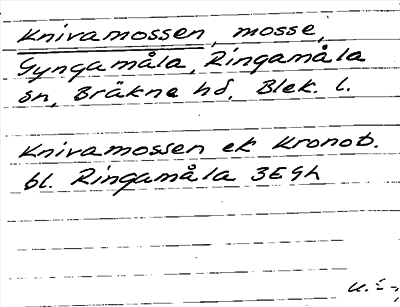 Knivamossen, mosse,
Gyngamåla, Ringamåla
sn, Bräkne hd, Blek. l.
Knivamossen ek Kronob.
bl. Ringamåla 3E9h